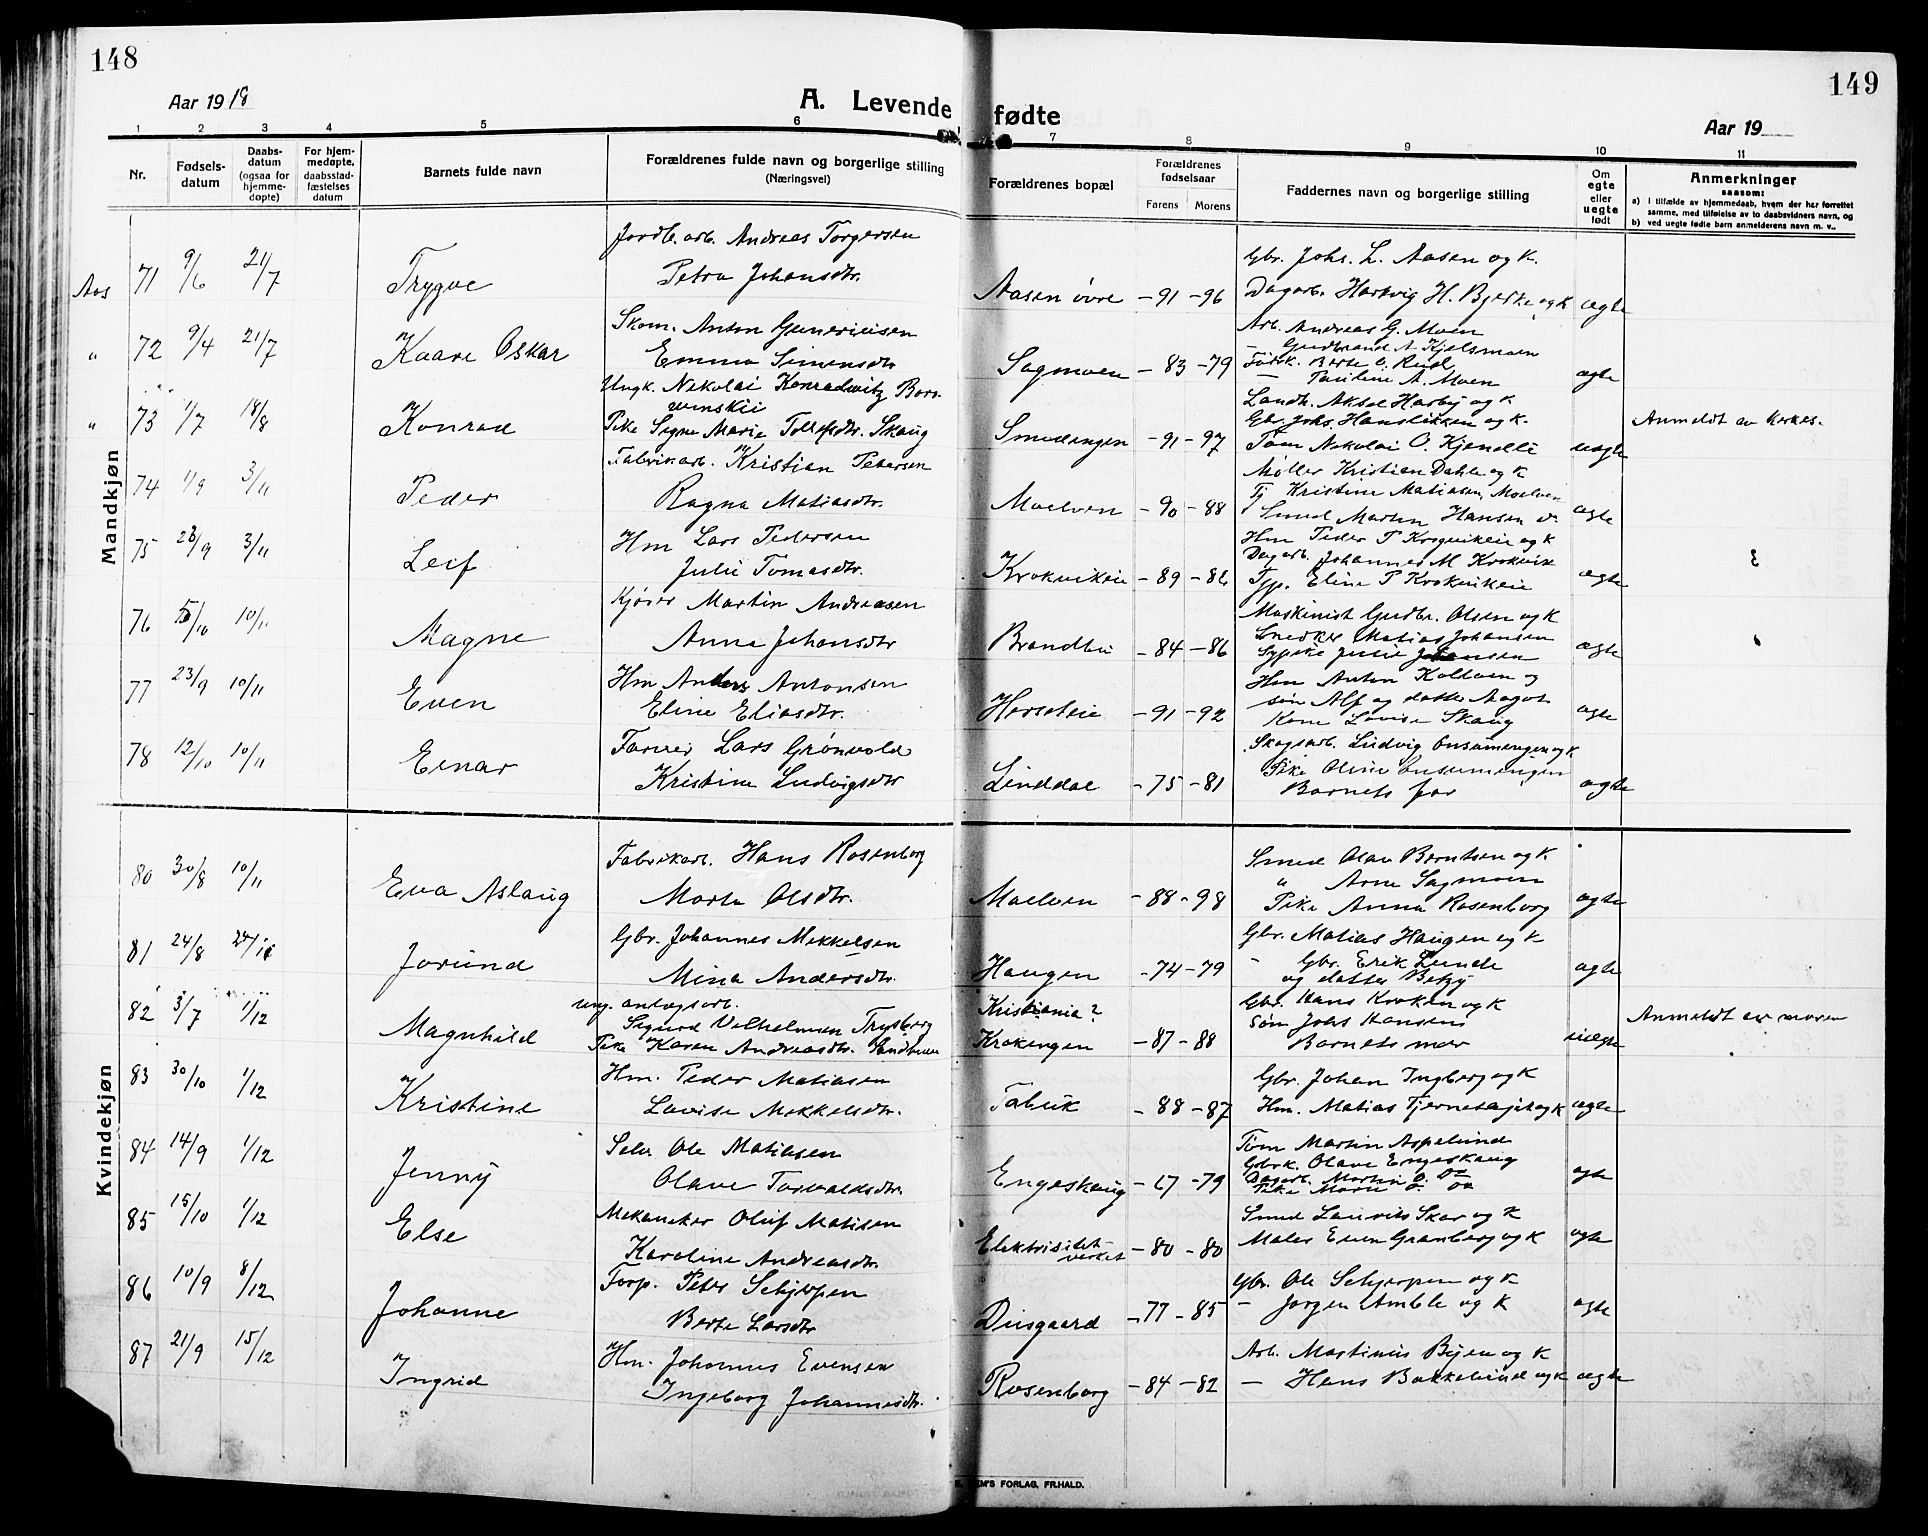 148
149
Aar 1918
A. Levende fødte
Aar 19
1 2 3 4 5 6 7 8 9 10 11
Nr.
Fødsels-
datum
Daabs-
datum
(ogsaa for
hjemme-
døpte)
For hjem-
medøpte,
daabsstad-
fæstelses
datum
Barnets fulde navn
Forældrenes fulde navn og borgerlige stilling
(Næringsvei)
Forældrenes bopæl
Forældrenes
fødselsaar
Farens Morens
Faddernes navn og borgerlige stilling
Om
egte
eller
uegte
født
Anmerkninger
saasom:
a) i tilfælde av hjemmedaab, hvem der har forrettet
samme, med tilføielse av to daabsvidners navn, og
b) ved uegte fødte barn anmelderens navn m. v..
Mandkjøn
Aas 71 9/6 21/7 Trygve
Jordb. arb. Andreas Torgersen
Petra Johansdtr.
Aasen øvre -91 -96
Gbr. Johs. L. Aasen og k.
Dagarb. Hartvig H. Bjerke og k
ægte
" 72 9/4 21/7 Kaare Oskar
Skom. Anton Guneriusen
Emma Simensdtr
Sagmoen -83 -79
Arb. Andreas G. Moen
- Gudbrand A. Kjelsmoen
Berte O. Rud
- Pauline A. Moen
ægte
" 73 1/7 18/8 Konrad
Ungk. Nikolai Konradwitz
Pike Signe Marie Skaug
Smedengen -91 -97
Landh. Aksel Harby og k
Gbr. Johs. Hanslikken og k.
Tøm Nikolai O. Kjendli
uegte
Anmeldt av
74 1/9 3/11 Peder
Fabrikarb. Kristian Petersen
Ragna Matiasdtr.
Moelven -90 -88
Møller Kristian Dahle og k
Tj Kristine Matiasen, Moelven
Smed Martin Hansen
ægte
75 28/9 3/11 Leif
Hm Lars Pedersen
Julie Tomasdtr.
Krokvikeie -89 -86
Hm Peder P Krokvikeie og k
Dagarb. Johannes M Krokvik
Tjp. Eline P Krokvikeie
ægte
76 5/10 10/11 Magne
Kjører Martin Andreasen
Anna Johansdtr
Brandlie -84 -86
Maskinist Gudbr. Olsen og k
Snedker Matias Johansen
Sypike Julie Johansen
ægte
77 23/9 10/11 Even
Hm Anders Antonsen
Eline Eliasdtr.
-91 -92
Hm Anton Kollven og
søn Alf og datter Aagot
Kone Lovise Skaug
ægte
78 12/10 10/11 Einar
Lars Grønvold
Kristine Ludvigsdtr
Linddal -75 -81
Skogsarb. Ludvig og k
Pike Oline
Barnets far
ægte
Kvindekjøn
80 30/8 10/11 Eva Aslaug
Fabrikarb. Hans Rosenborg
Marta Olsdtr.
Moelven -88 -98
Smed Olav Berntsen og k.
" Arne Sagmoen
Pike Anna Rosenborg
ægte
81 24/8 24/11 Jorund
Gbr. Johannes Mikkelsen
Mina Andersdtr.
Haugen -74 -79
Gbr. Matias Haugen og k
- Gbr. Erik Lunde
og datter Betzy
ægte
82 3/7 1/12 Magnhild
ung. anlægsarb.
Sigurd Vilhelmsen Trysberg
Pike Karen Andreasdtr.
Kristiania?
Krokengen -87 -88
Gbr. Hans Kroken og k
søn Johs Hansen
Barnets mor
uegte
Anmeldt av moren
83 30/10 1/12 Kristine
Hm. Peder Matiasen
Lovise Mikkelsdtr.
Fabrik -88 -87
Gbr. Johan Ingberg og k
Hm. Matias og k
ægte
84 14/9 1/12 Jenny
Selv. Ole Matiasen
Olave Torvaldsdtr.
Engeskaug -67 -79
Tøm Martin Aspelund
Gbrk. Olave Engeskaug
Dagarb. Martin O. Do
Pike Marie O. Do
ægte
85 15/10 1/12 Else
Mekaniker Oluf Matisen
Karoline Andreasdtr.
Elektrisitet-
verket -80 -80
Smed Laurits Skar og k
Maler Even Granberg og k
ægte
86 10/9 8/12 Johanne
Forp. Peter Schjerpen
Berte Larsdtr
Diisgaard -77 -85
Gbr. Ole Schjerpen og k
- Jørgen Amble og k
ægte
87 21/9 15/12 Ingrid
Hm. Johannes Evensen
Ingeborg Johannesdtr.
Rosenborg -84 -82
Arb. Martinius Bjen og k
- Hans Bakkelund og k
ægte
FORLAG, FR.HALD.